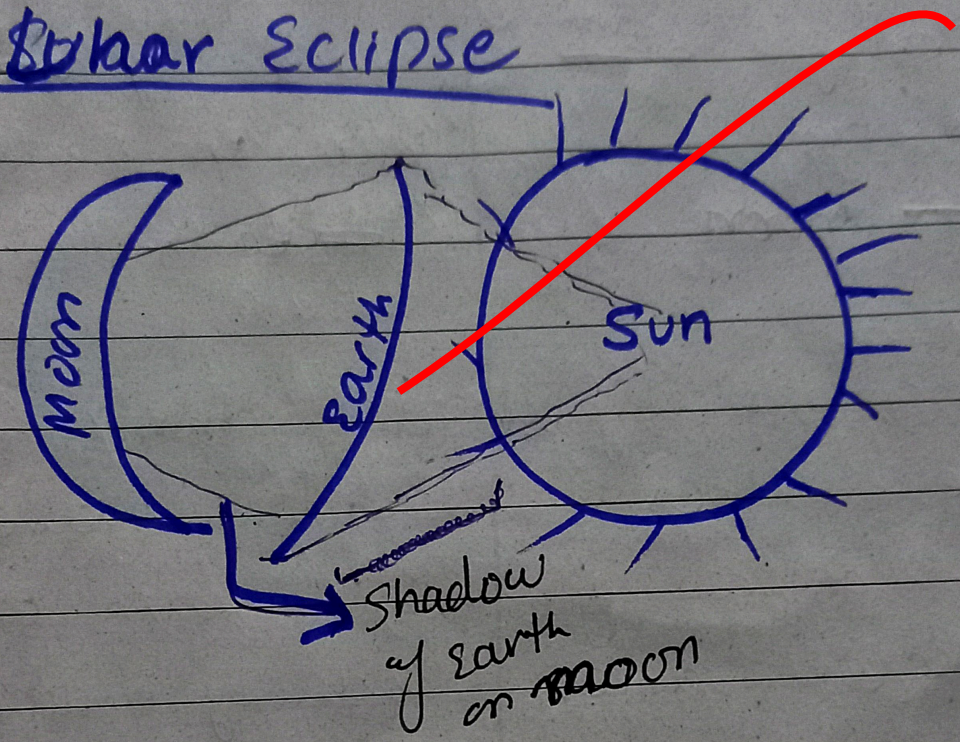 Solaar Eclipse
Moon
Earth
Sun
Shadow
of Earth
on moon